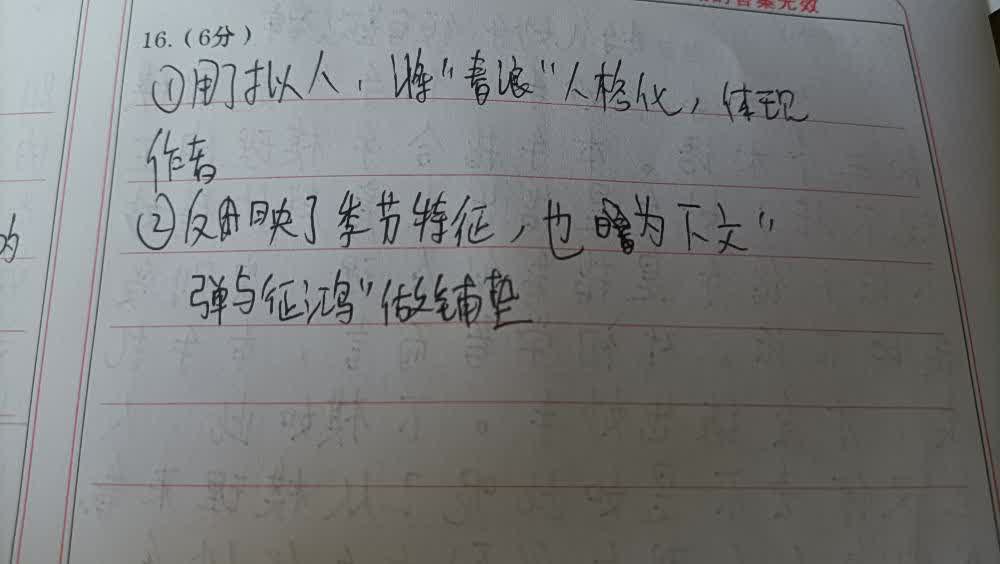 的答案无效
16.（6分）
①用了拟人，将“春浪”人格化，体现
作者
②反映了季节特征，也为下文“
弹与征鸿”做铺垫
为